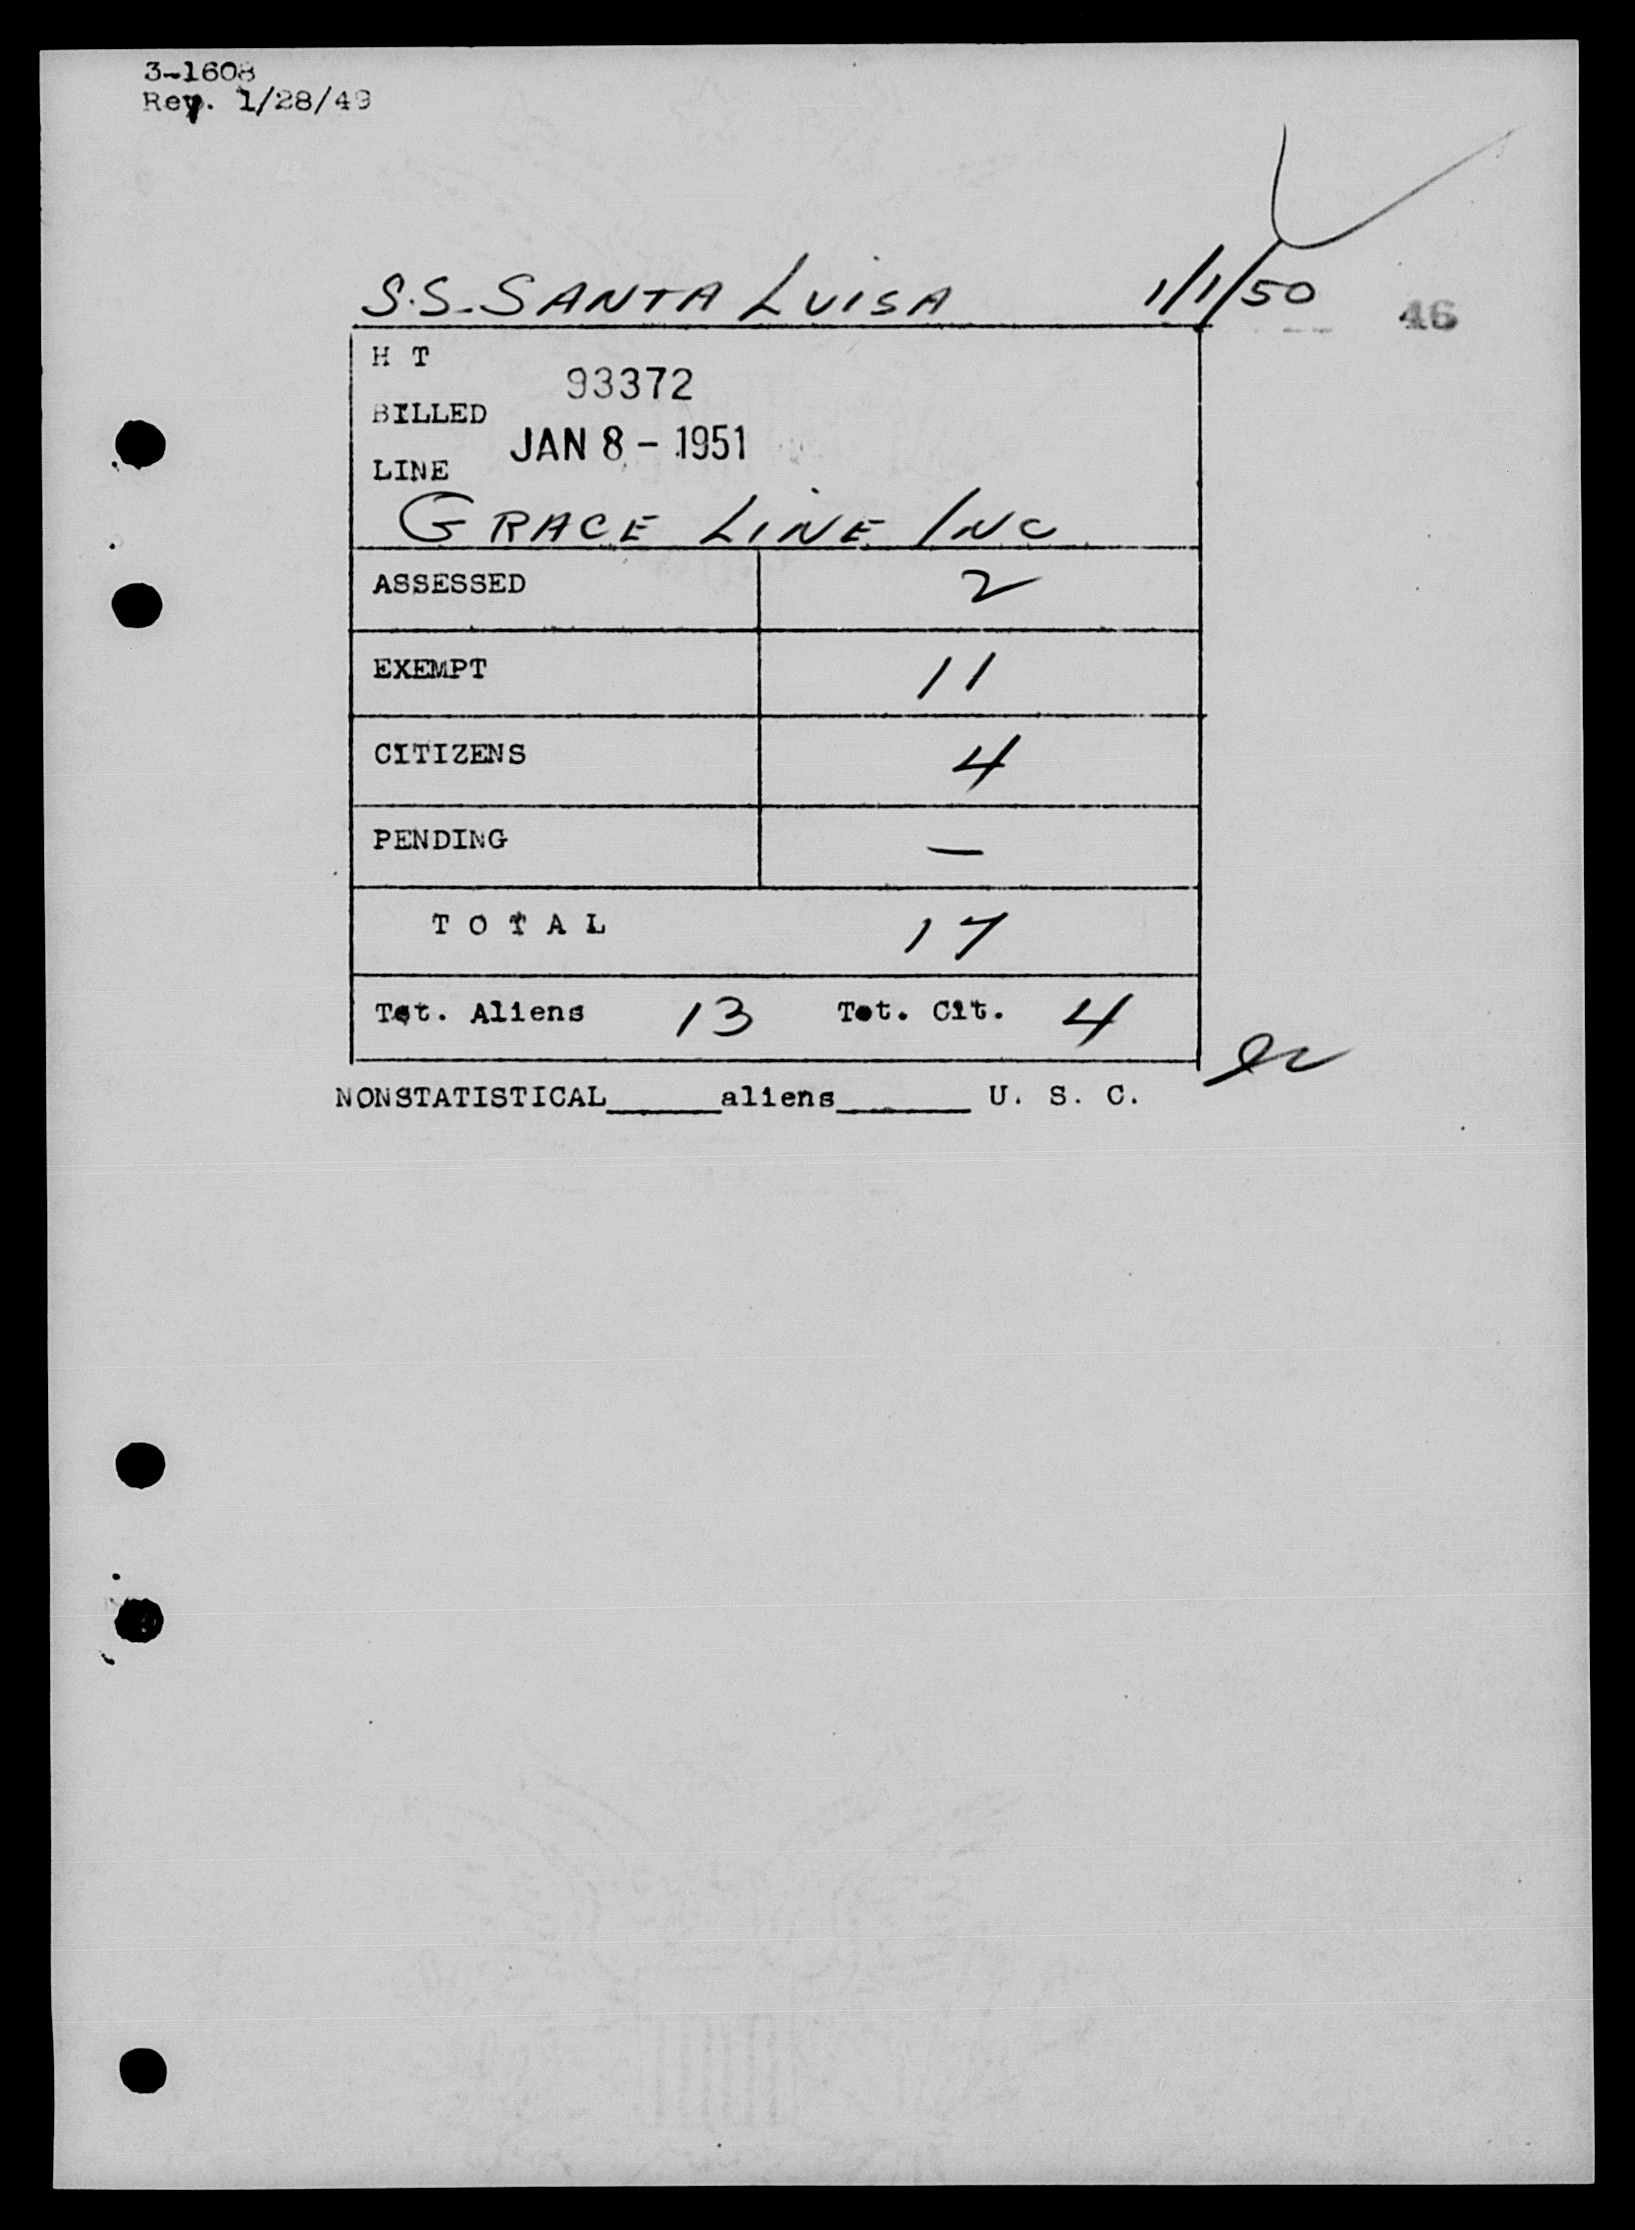 3-1608
Rev. 1/28/49
S.S. SANTA LUISA 1/1/50 46
H T
93372
BILLED
JAN 8 - 1951
LINE
GRACE LINE INC
ASSESSED 2
EXEMPT 11
CITIZENS 4
PENDING —
T O T A L 17
Tot. Aliens 13 Tot. Cit. 4
NONSTATISTICAL______aliens_______ U. S. C.